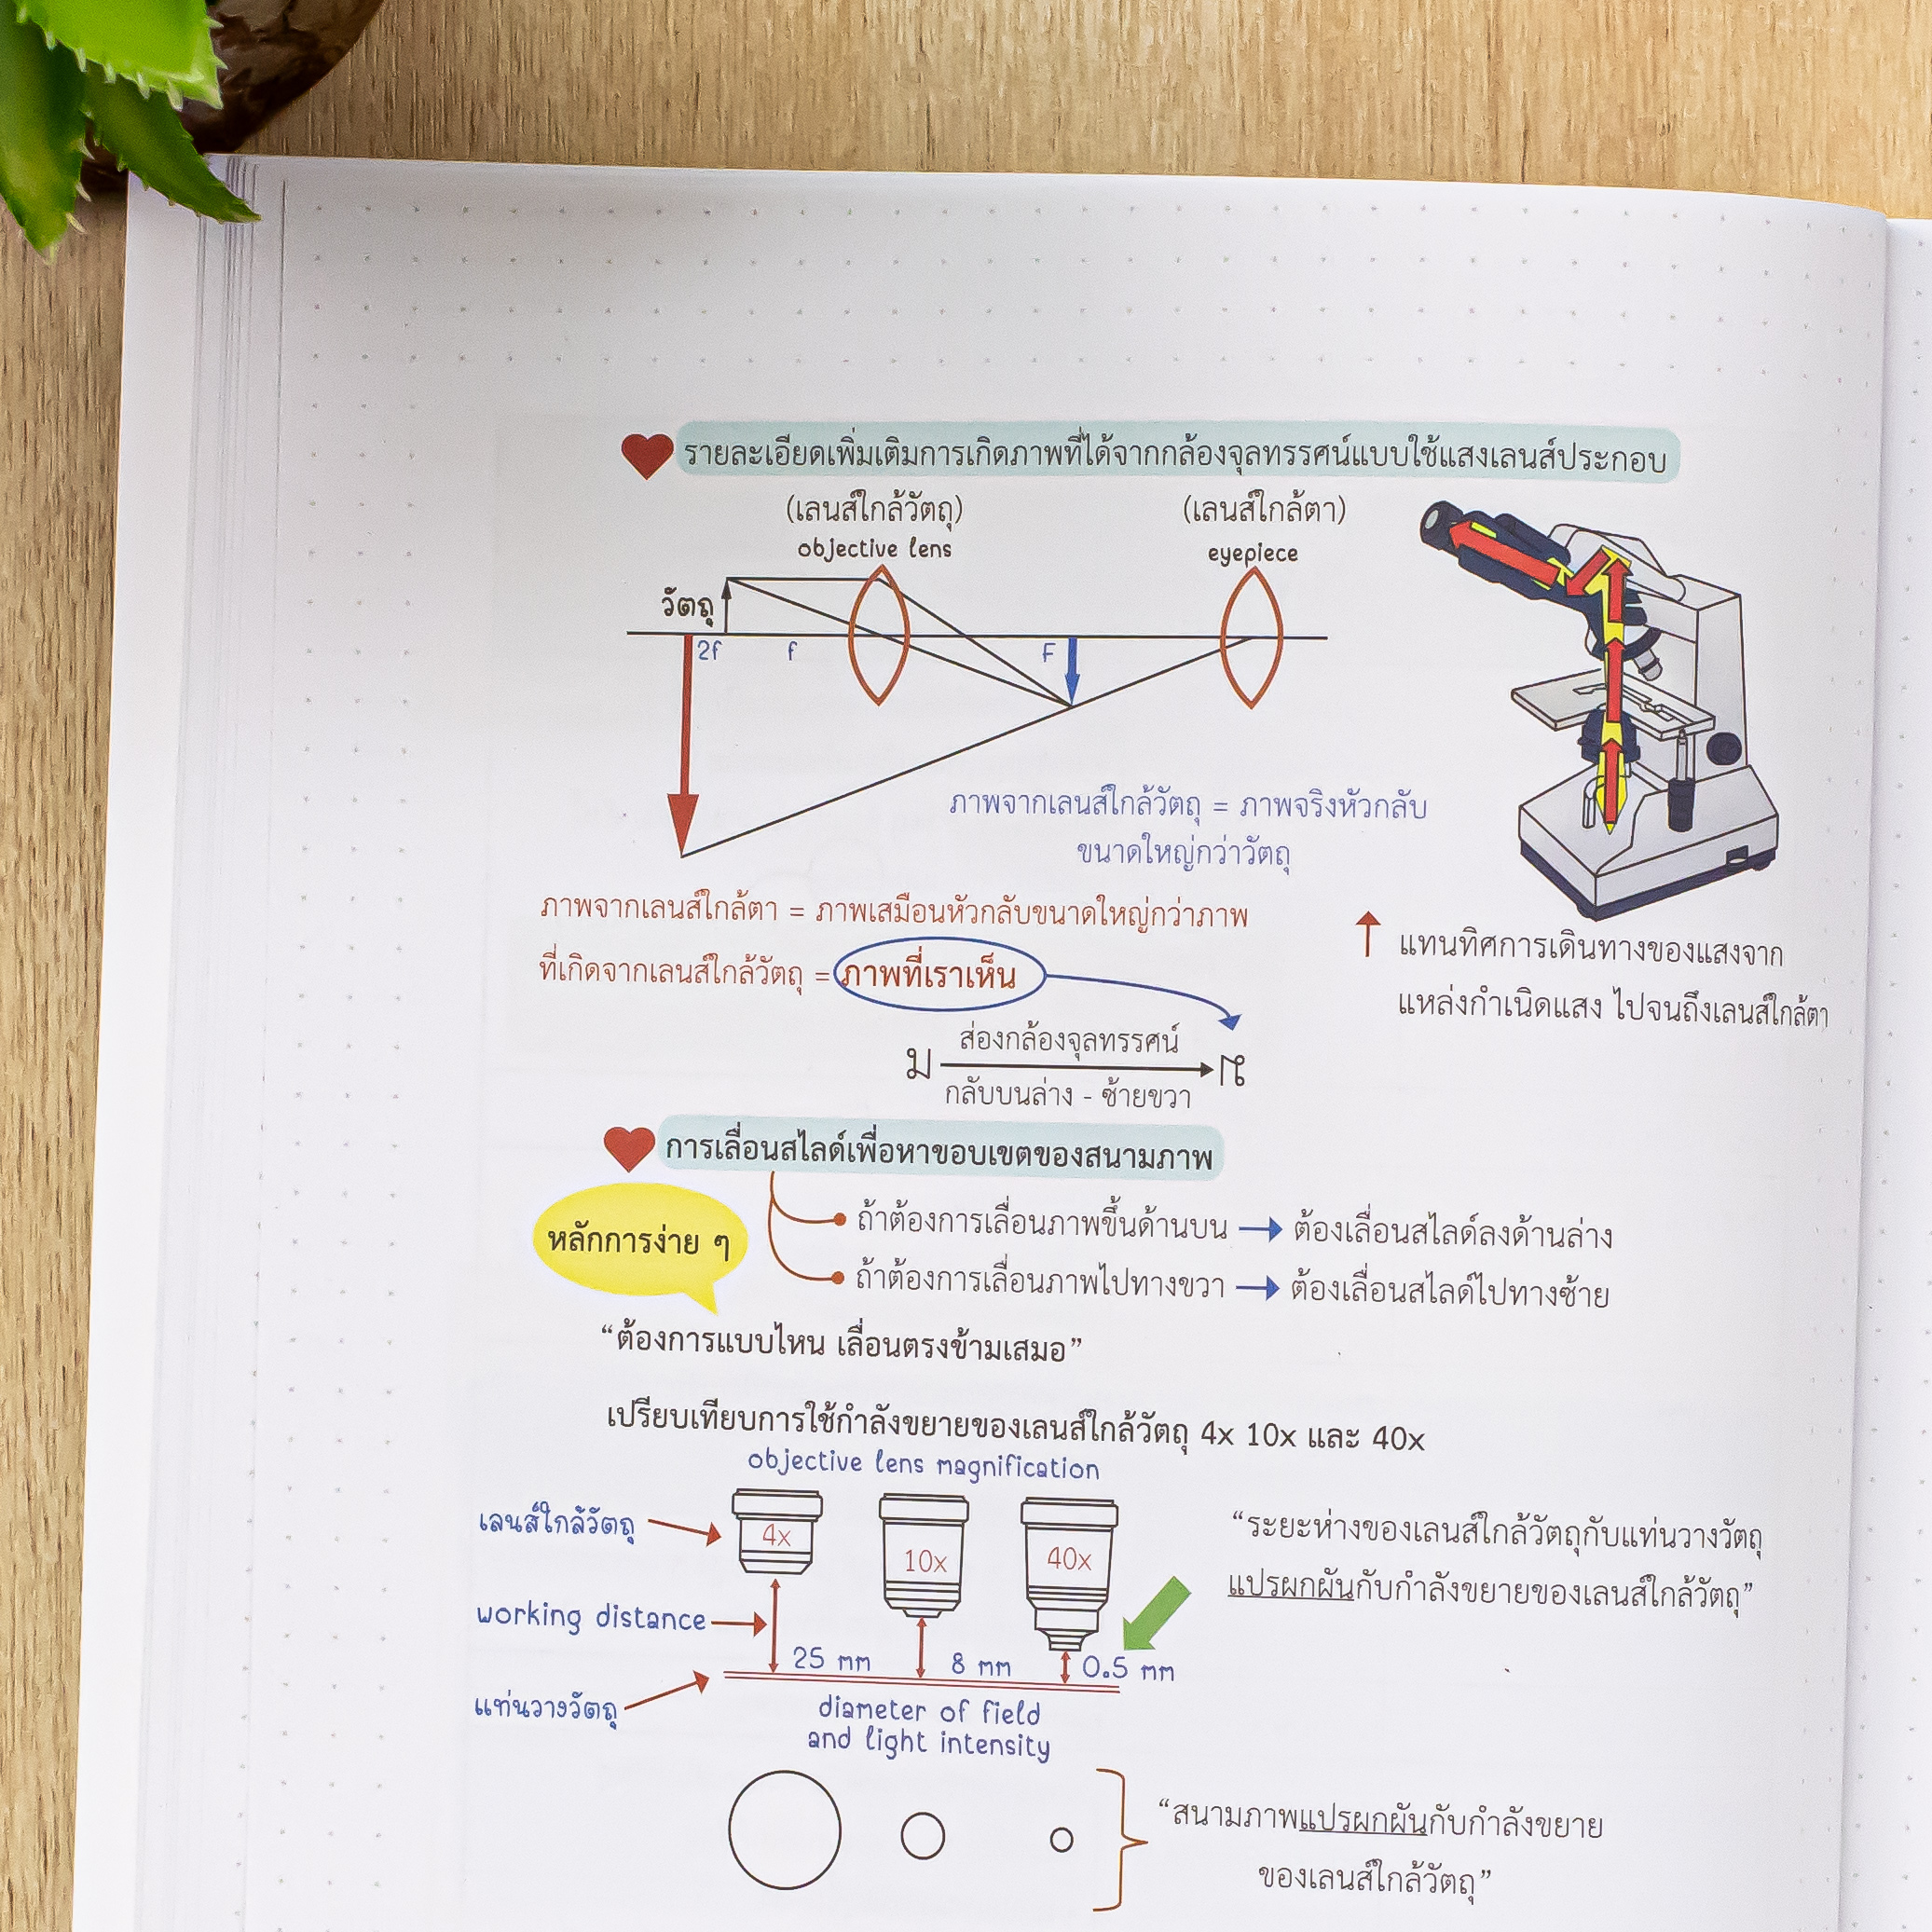 รายละเอียดเพิ่มเติมการเกิดภาพที่ได้จากกล้องจุลทรรศน์แบบใช้แสงเลนส์ประกอบ
(เลนส์ใกล้วัตถุ)
objective lens
(เลนส์ใกล้ตา)
eyepiece
วัตถุ
2f
f
F
ภาพจากเลนส์ใกล้วัตถุ = ภาพจริงหัวกลับ
ขนาดใหญ่กว่าวัตถุ
ภาพจากเลนส์ใกล้ตา = ภาพเสมือนหัวกลับขนาดใหญ่กว่าภาพ
ที่เกิดจากเลนส์ใกล้วัตถุ = ภาพที่เราเห็น
แทนทิศการเดินทางของแสงจาก
แหล่งกำเนิดแสง ไปจนถึงเลนส์ใกล้ตา
ส่องกล้องจุลทรรศน์
ม
กลับบนล่าง - ซ้ายขวา
การเลื่อนสไลด์เพื่อหาขอบเขตของสนามภาพ
หลักการง่าย ๆ
ถ้าต้องการเลื่อนภาพขึ้นด้านบน → ต้องเลื่อนสไลด์ลงด้านล่าง
ถ้าต้องการเลื่อนภาพไปทางขวา → ต้องเลื่อนสไลด์ไปทางซ้าย
“ต้องการแบบไหน เลื่อนตรงข้ามเสมอ”
เปรียบเทียบการใช้กำลังขยายของเลนส์ใกล้วัตถุ 4x 10x และ 40x
objective lens magnification
เลนส์ใกล้วัตถุ
4x
10x
40x
“ระยะห่างของเลนส์ใกล้วัตถุกับแท่นวางวัตถุ
แปรผกผันกับกำลังขยายของเลนส์ใกล้วัตถุ”
working distance
25 mm
8 mm
0.5 mm
แท่นวางวัตถุ
diameter of field
and light intensity
“สนามภาพแปรผกผันกับกำลังขยาย
ของเลนส์ใกล้วัตถุ”